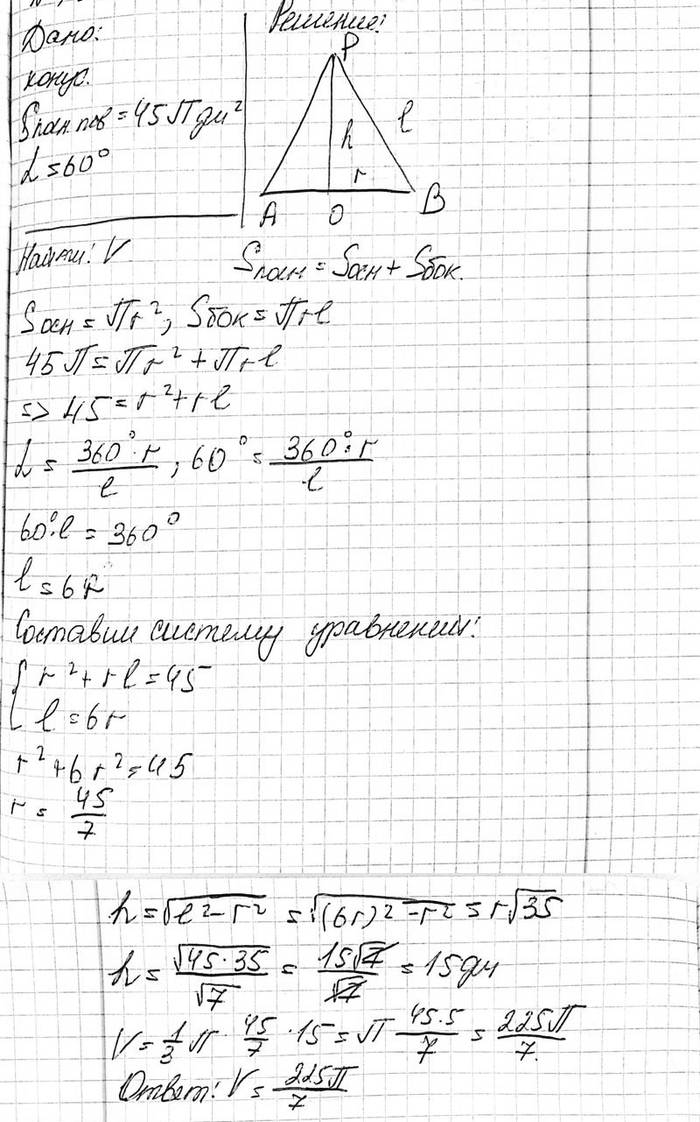 Решение:
Дано:
конус.
Sполн.пов = 45π дм²
α = 60°
P
h
l
r
A
O
B
Найти: V
Sполн = Sосн + Sбок.
Sосн = πr², Sбок = πrl
45π = πr² + πrl
=> 45 = r² + rl
α = 360°·r / l ; 60° = 360°·r / l
60°·l = 360°
l = 6r
Составим систему уравнений:
{ r² + rl = 45
l = 6r
r² + 6r² = 45
r = 45/7
h = √(l² - r²) = √((6r)² - r²) = r√35
h = √(45·35) / √7 = 15√7 / √7 = 15 дм
V = 1/3 π · 45/7 · 15 = π 45·5 / 7 = 225π / 7.
Ответ: V = 225π / 7